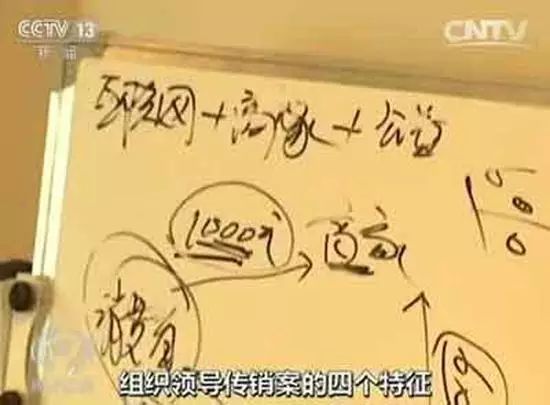 CCTV 13 CNTV
新闻
互联网+商家+公益
1000元 商家
消费者
组织领导传销案的四个特征